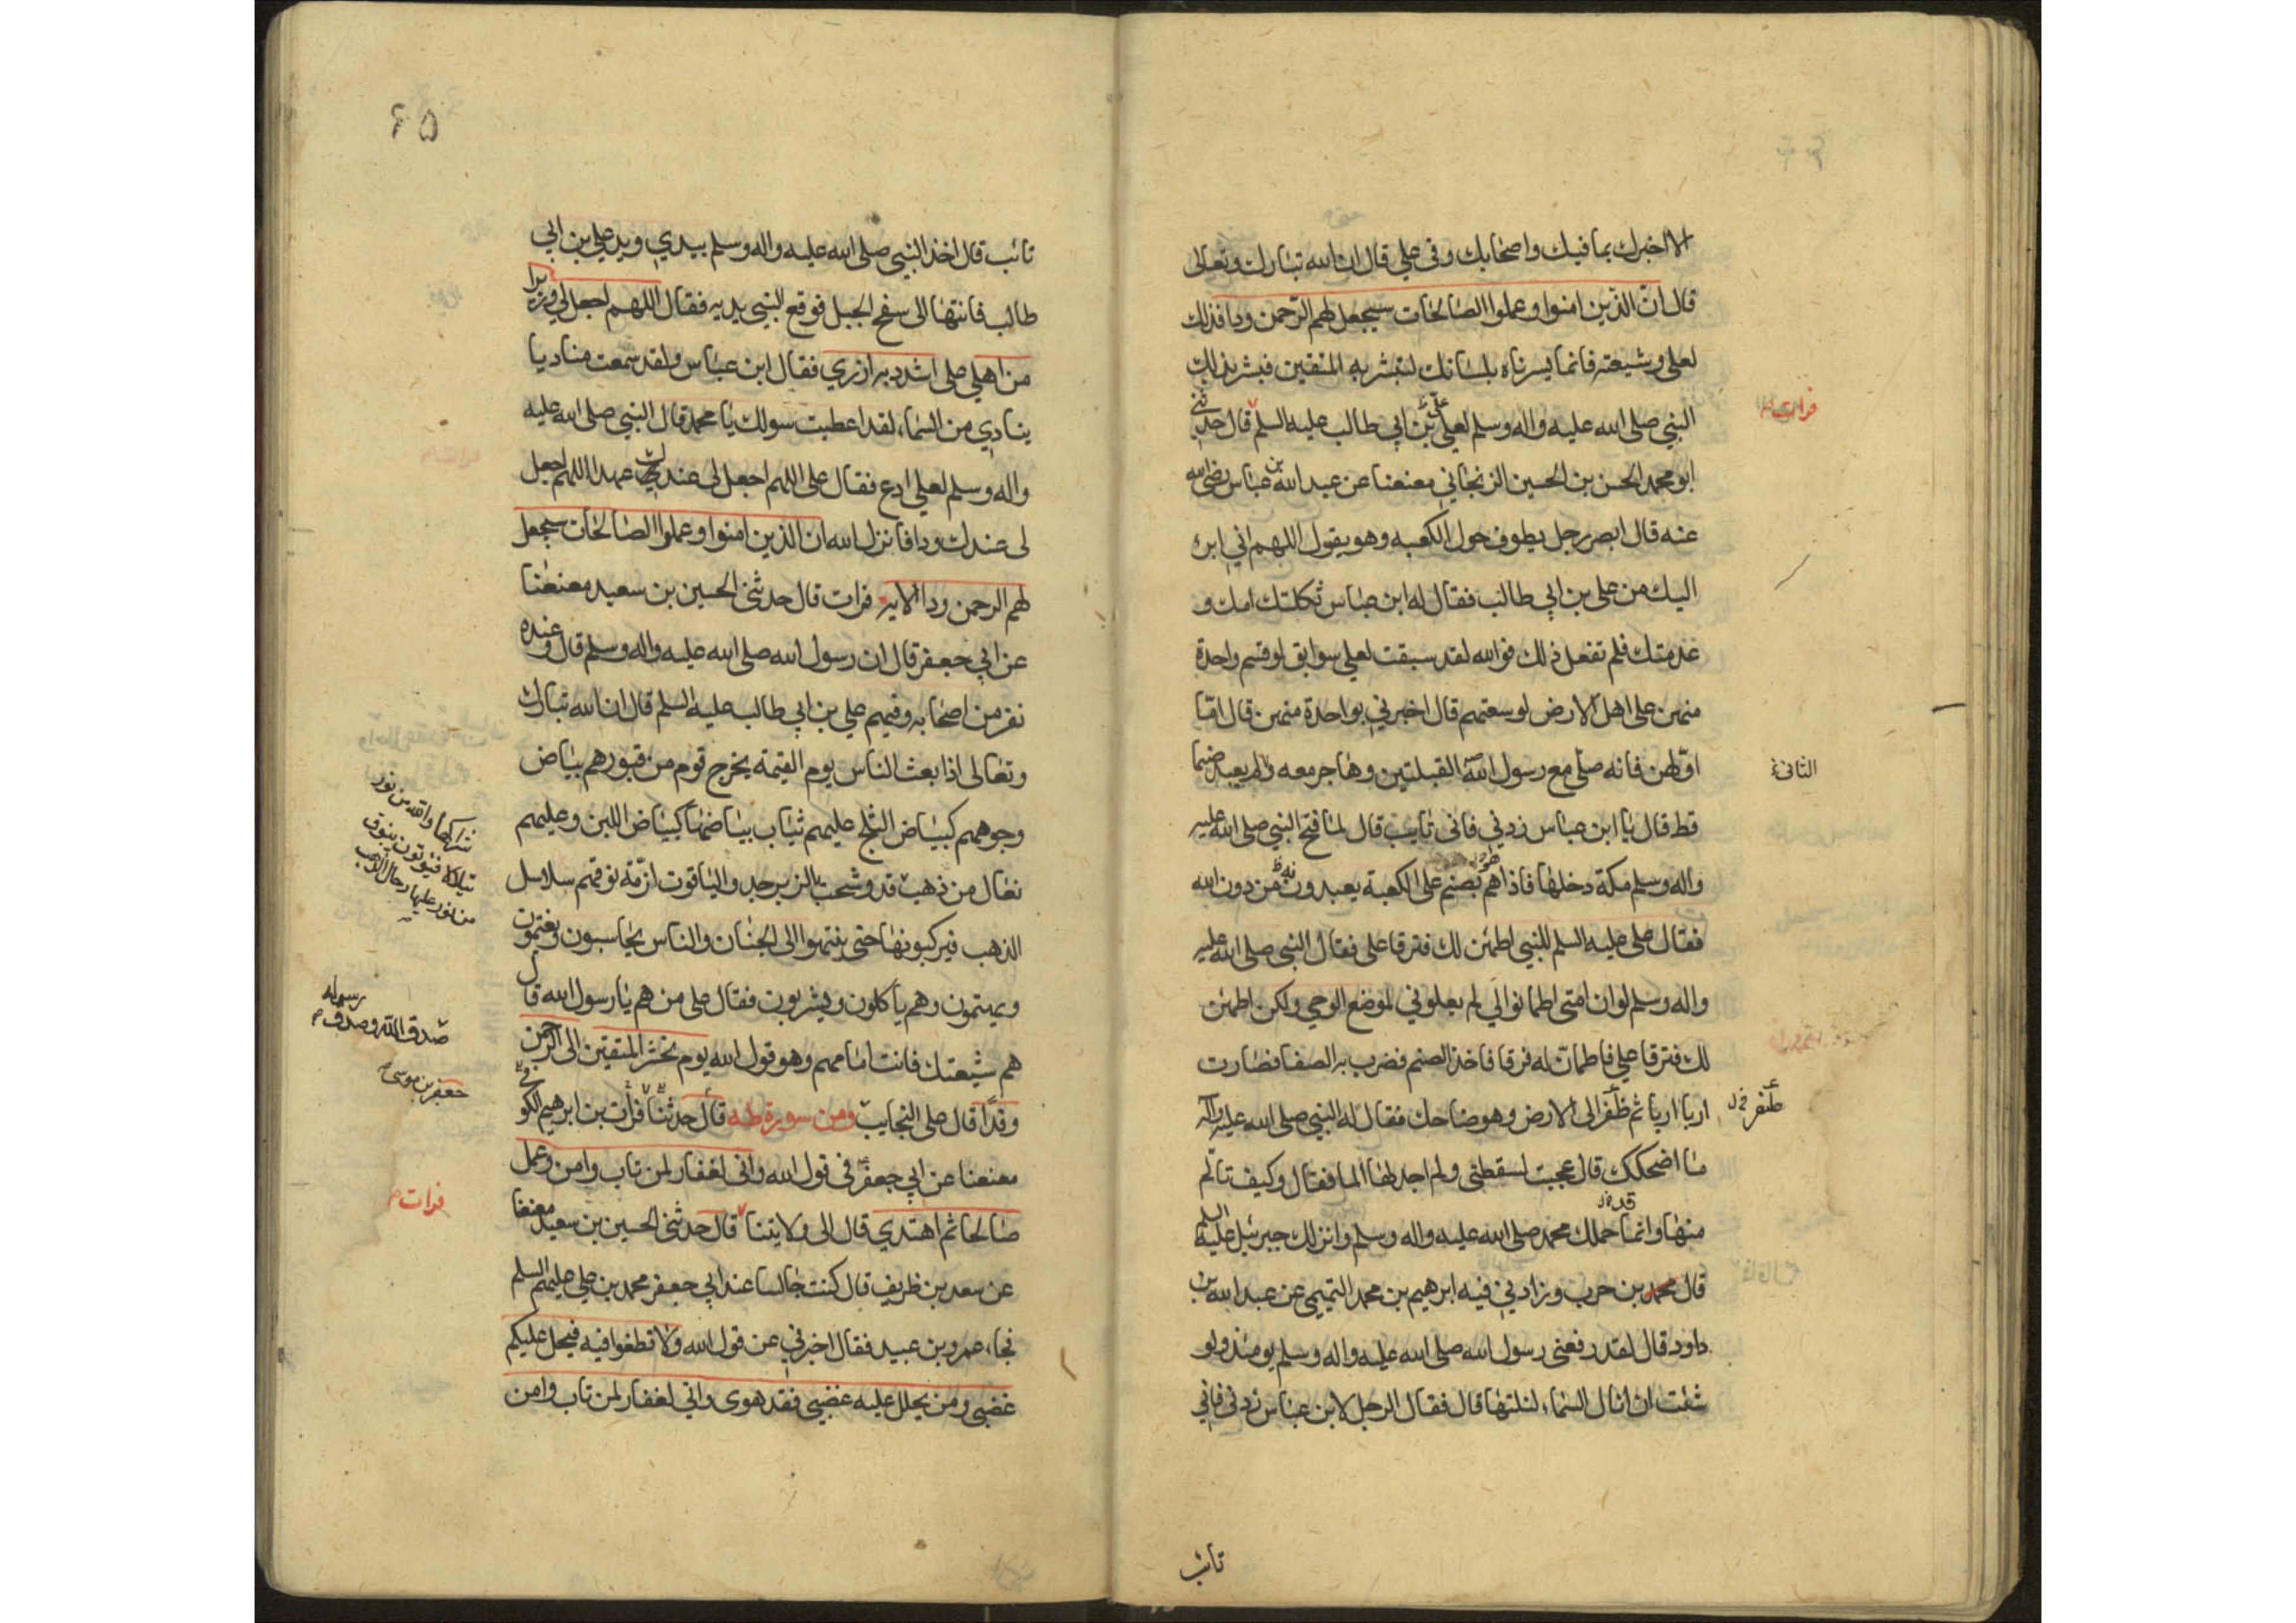 الا اخبرك بما فيك واصحابك وفى على قال ان الله تبارك وتعالى
قال انّ الذين امنوا وعملوا الصالحات سيجعل لهم الرّحمن ودا فذلك
لعلي وشيعته فانما يسرناه بلسانك لتبشر به المتقين فبشر بذلك
النبي صلى الله عليه واله وسلم لعلي بن ابي طالب عليه السلم قال حدثني
فرات
ابو محمد الحسن بن الحسين الزنجاني معنعنا عن عبد الله بن عباس رضي الله
عنه قال ابصر رجل يطوف حول الكعبه وهو يقول اللهم اني ابرء
اليك من على بن ابي طالب فقال له ابن عباس ثكلتك امك و
عدمتك فلم تفعل ذلك فوالله لقد سبقت لعلي سوابق لو قسم واحدة
منهن على اهل الارض لوسعتهم قال اخبرني بواحدة منهن قال امّا
اوّلهن فانه صلّى مع رسول الله القبلتين وهاجر معه ولم يعبد صنما
الثانى
قط قال يا ابن عباس زدني فاني تايب قال لما فتح النبي صلى الله عليه
واله وسلم مكة دخلها فاذا هم بصنم على الكعبة يعبدونه من دون الله
فقال على عليه السلم للنبي اطمئن لك فترقا على فقال النبي صلى الله عليه
واله وسلم لو ان امتى اطمانوا لي لم يعلوني لموضع الوحي ولكن اطمئن
لك فترقا علي فاطمانّ له فرقا فاخذ الصنم فضرب به الصفا فصارت
اربا اربا ثم ظفر الى الارض وهو ضاحك فقال له النبي صلى الله عليه واله
طنفر
ما اضحكك قال عجبت لسقطتى ولم اجد لها الما فقال وكيف تالم
منها وانما حملك محمد صلى الله عليه واله وسلم وانزلك جبرئيل عليه السلم
قال محمد بن حرب وزادني فيه ابرهيم بن محمد التميمي عن عبد الله بن
داود قال لقد رفعنى رسول الله صلى الله عليه واله وسلم يومئذ ولو
شئت ان انال السماء لنلتها قال فقال الرجل لابن عباس زدنى فاني
تائب
٦٥
تائب قال اخذ النبي صلى الله عليه واله وسلم بيدي ويد علي بن ابي
طالب فانتها الى سفح الجبل فوقع النبي يديه فقال اللهم اجعل لي وزيرا
من اهلي على اشدد به ازري فقال ابن عباس ولقد سمعت مناديا
ينادي من السماء لقد اعطيت سولك يا محمد قال النبي صلى الله عليه
واله وسلم لعلي ادع فقال على اللهم اجعل لى عندك عهدا اللهم اجعل
لى عندك ودا فانزل الله ان الذين امنوا وعملوا الصالحات سيجعل
لهم الرحمن ودا الايه فرات قال حدثنى الحسين بن سعيد معنعنا
عن ابي جعفر قال ان رسول الله صلى الله عليه واله وسلم قال وعنده
نفر من اصحابه وفيهم علي بن ابي طالب عليه السلم قال ان الله تبارك
وتعالى اذا بعث الناس يوم القيمة يخرج قوم من قبورهم بياض
وجوههم كبياض الثلج عليهم ثياب بياضها كبياض اللبن وعليهم
شراكها والله من نور
نعال من ذهب قد وشحت بالزبرجد والياقوت ازمّة نوقهم سلاسل
الذهب فيركبونها حتى ينتهوا الى الجنان والناس يحاسبون ويغتمون
ويهتمون وهم ياكلون ويشربون فقال على من هم يا رسول الله قال
هم شيعتك فانت امامهم وهو قول الله يوم نحشر المتقين الى الرحمن
جعفر بن موسى
وفدًا قال على النجايب ومن سورة طه قال حدثنا فرات بن ابرهيم الكوفي
معنعنا عن ابي جعفر في قول الله واني لغفار لمن تاب وامن وعمل
فرات
صالحا ثم اهتدي قال الى ولايتنا قال حدثنى الحسين بن سعيد معنعنا
عن سعد بن ظريف قال كنت جالسا عند ابي جعفر محمد بن علي عليهم السلم
فجاء عمرو بن عبيد فقال اخبرني عن قول الله ولا تطغوا فيه فيحل عليكم
غضبي ومن يحلل عليه غضبي فقد هوى واني لغفار لمن تاب وامن